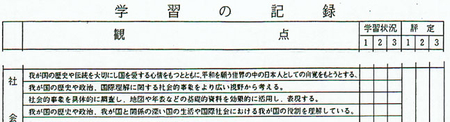 学習の記録
観点 学習状況 評定
1 2 3 1 2 3
社会
我が国の歴史や伝統を大切にし国を愛する心情をもつとともに、平和を願う世界の中の日本人としての自覚をもとうとする。
我が国の歴史や政治、国際理解に関する社会的事象をより広い視野から考える。
社会的事象を具体的に調査し、地図や年表などの基礎的資料を効果的に活用し、表現する。
我が国の歴史や政治、我が国と関係の深い国の生活や国際社会における我が国の役割を理解している。